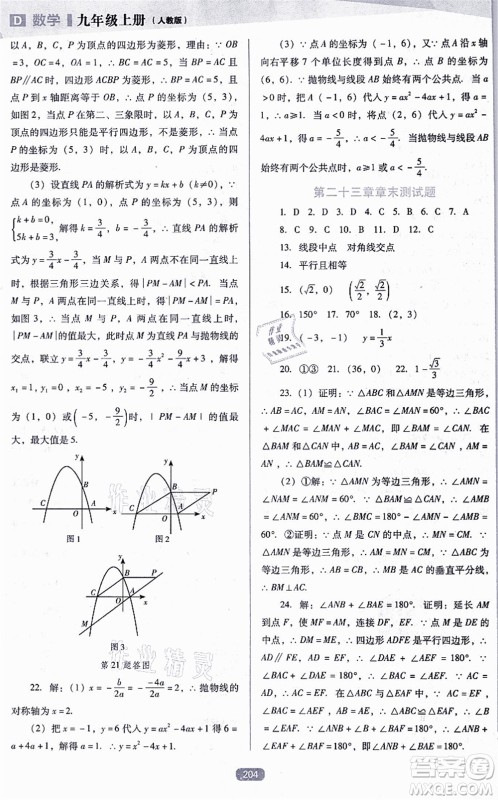 D 数学 九年级上册 (人教版)
以 A，B，C，P 为顶点的四边形为菱形，理由：∵ OB
=3，OC=4，OA=1，∴ BC=AC=5. 当 BP=AC 且
BP∥AC 时，四边形 ACBP 为菱形. ∴ BP=AC=5，且
点 P 到 x 轴距离等于 OB，∴ 点 P 的坐标为 (5，3)，
如图 2，当点 P 在第二、三象限时，以 A，B，C，P 为
顶点的四边形只能是平行四边形，不是菱形，∴ 当点 P
的坐标为 (5，3) 时，以点 A，B，C，P 为顶点的四
边形是菱形.
(3) 设直线 PA 的解析式为 y=kx+b(k≠0)，
{k+b=0, 5k+b=3, 解得 k=3/4，b=-3/4，∴ 直线 PA 的解析
式为 y=3/4x-3/4，当 M 与 P，A 两点不在同一直线上
时，根据三角形三边关系，得 |PM-AM|<PA. 当点 M
与 P，A 两点在同一直线上时，得 |PM-AM|=PA，
如图 3，∴ 当点 M 与 P，A 两点在同一直线上时，
|PM-AM| 的值最大，此时点 M 为直线 PA 与抛物线的
交点，联立 y=3/4x-3/4，y=-3/4x²-9/4x+3，解得
x₁=1，x₂=-5，y₁=0，y₂=-9/2，∴ 当点 M 的坐标
为 (1，0) 或 (-5，-9/2) 时，|PM-AM| 的值最
大，最大值是 5.
图 1
图 2
图 3
第 21 题答图
22. 解：(1) x=-b/2a=--4a/2a=2，∴ 抛物线的
对称轴为 x=2.
(2) 把 x=-1，y=6 代入 y=ax²-4ax+1 得 6=
a+4a+1，解得 a=1. ∴ y=x²-4x+1.
(3) ∵ 点 A 的坐标为 (-1，6)，点 B 是点 A 沿 x 轴
向右平移 7 个单位长度得到的，∴ 点 B 的坐标为
(6，6)，∵ 抛物线与线段 AB 始终有两个公共点. 当 a
>0 时，把 A(-1，6) 代入 y=ax²-4ax+1，得 a=1.
当 a<0 时，把 (2，6) 代入 y=ax²-4ax+1，得 6=4a-
8a+1，得 a=-5/4，∴ a≤-5/4. 当抛物线与线段 AB
始终有两个公共点时，a≥1 或 a≤-5/4.
第二十三章章末测试题
1. D 2. D 3. D 4. D 5. C 6. B 7. C
8. C 9. C 10. B 11. A 12. A
13. 线段中点 对角线交点
14. 平行且相等
15. (√2，0) (√2/2，√2/2)
16. 150° 17. 90° 18. 4
19. (-3，-1) y=1/3x
20. ①③ 21. (36，0) 22. 1-√3/3
23. (1) 证明：∵ △ABC 和△AMN 是等边三角形，
∴ AB=AC，AM=AN，∠BAC=∠MAN=60°，∴ ∠BAC
+∠MAC=∠MAN+∠MAC，即∠BAM=∠CAN. 在
△BAM 和△CAN 中，∴ △BAM≌△CAN，∴ BM=CN.
(2) ①解：∵ △AMN 为等边三角形，∴ ∠AMN=
∠NAM=∠ANM=60°，∵ △BAM≌△CAN，∴ ∠AMB=
∠ANC=60°，∴ ∠BMC=180°-∠AMN-∠AMB=
60°. ②证明：∵ 点 M 为 CN 的中点，∴ MN=CM.
∵ △AMN 为等边三角形，∴ AM=MN，∴ AM=CM. ∵
△ABC 为等边三角形，∴ BM 是 AC 的垂直平分线，
∴ BM⊥AC.
24. 解：∠ANB+∠BAE=180°. 证明：延长 AM
到点 F，使 MF=AM，连接 DF，EF. ∵ 点 M 是 DE 的中
点，∴ DM=ME，∴ 四边形 ADFE 是平行四边形，∴
AD∥EF，AD=EF，∴ ∠DAE+∠AEF=180°. ∵ ∠BAC
+∠DAE=180°，∴ ∠BAC=∠AEF. ∵ AB=AE，AC=
AD，∴ AC=EF，∴ △ABC≌△EAF，∴ ∠B=∠EAF.
∵ ∠ANB+∠B+∠BAN=180°，∴ ∠ANB+∠EAF+
∠BAN=180°，∴ ∠ANB+∠BAE=180°.
204
作业精灵